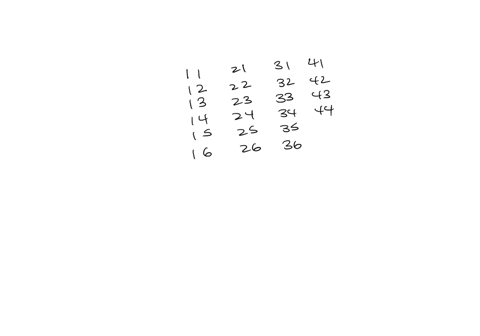 11 21 31 41
12 22 32 42
13 23 33 43
14 24 34 44
15 25 35
16 26 36